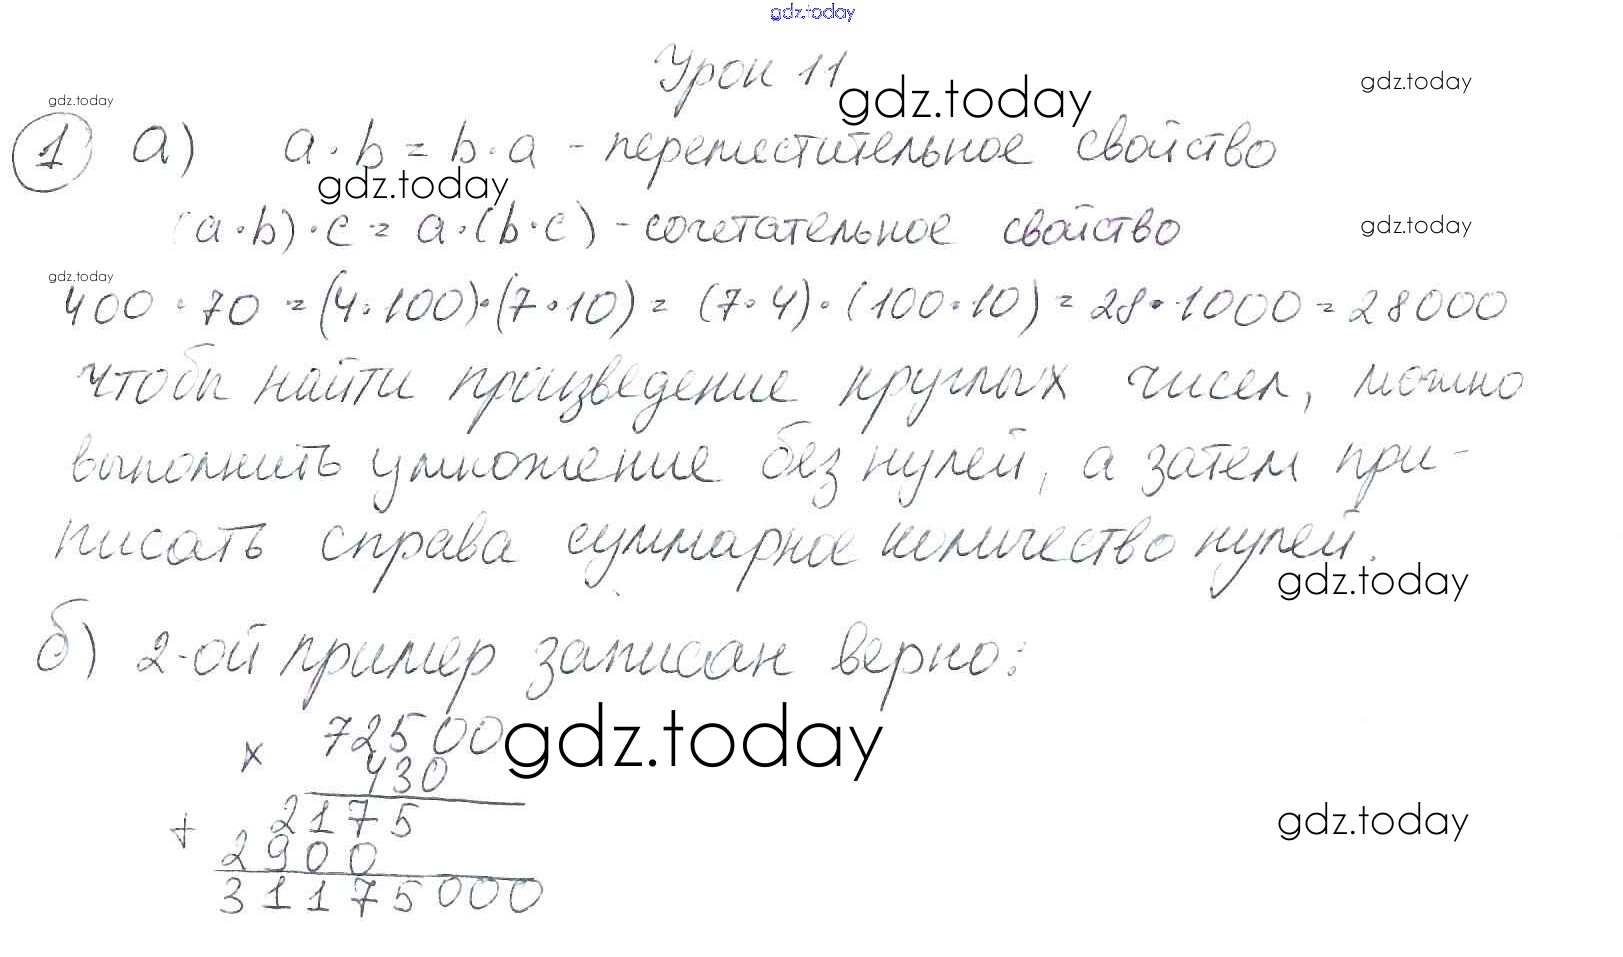 gdz.today
Урок 11
gdz.today
gdz.today
gdz.today
1 а) a · b = b · a - переместительное свойство
gdz.today
(a · b) · c = a · (b · c) - сочетательное свойство
gdz.today
gdz.today
400 · 70 = (4 · 100) · (7 · 10) = (7 · 4) · (100 · 10) = 28 · 1000 = 28000
чтобы найти произведение круглых чисел, можно
выполнить умножение без нулей, а затем при-
писать справа суммарное количество нулей.
gdz.today
б) 2-ой пример записан верно:
72500
gdz.today
x
430
2175
gdz.today
+
2900
31175000